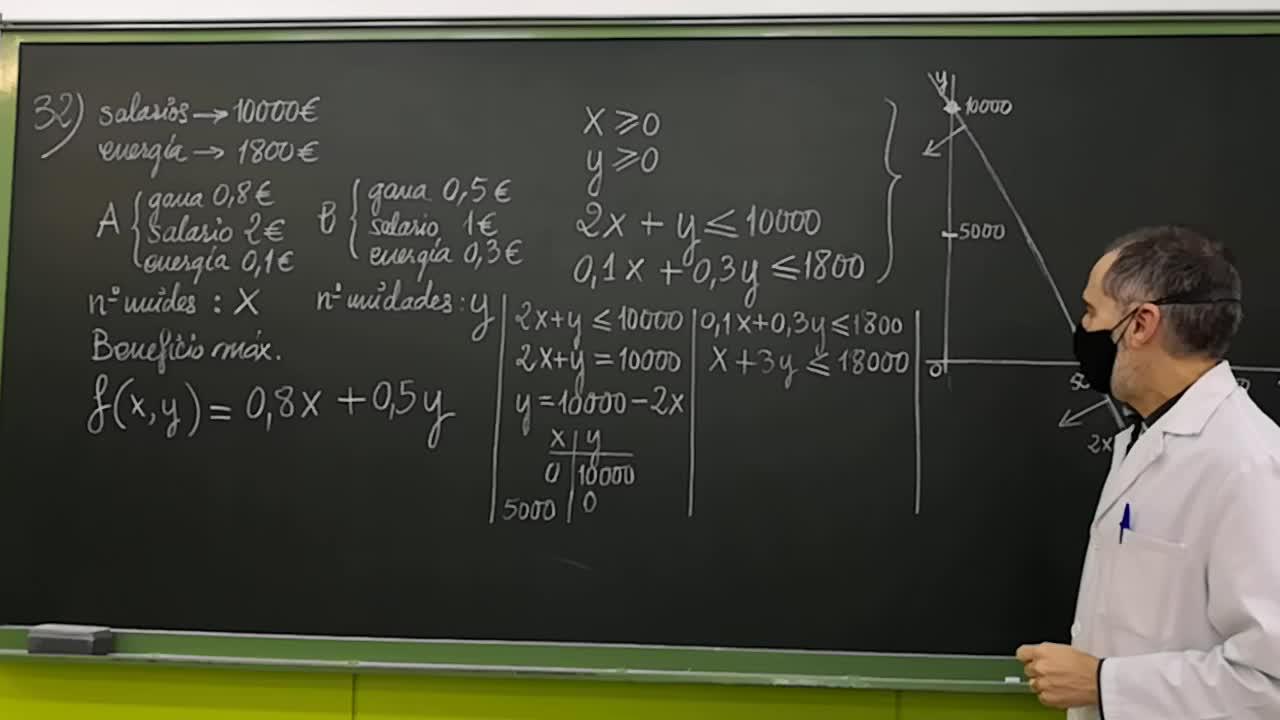 32) salarios → 10000€
energía → 1800€
A { gana 0,8€
salario 2€
energía 0,1€
B { gana 0,5€
salario 1€
energía 0,3€
nº unides : X
nº unidades : y
Beneficio máx.
f(x,y) = 0,8x + 0,5y
x ⩾ 0
y ⩾ 0
2x + y ≤ 10000
0,1x + 0,3y ≤ 1800
2x+y ≤ 10000
2x+y = 10000
y = 10000 - 2x
x | y
0 | 10000
5000 | 0
0,1x+0,3y ≤ 1800
x + 3y ≤ 18000
y
10000
5000
0
2x